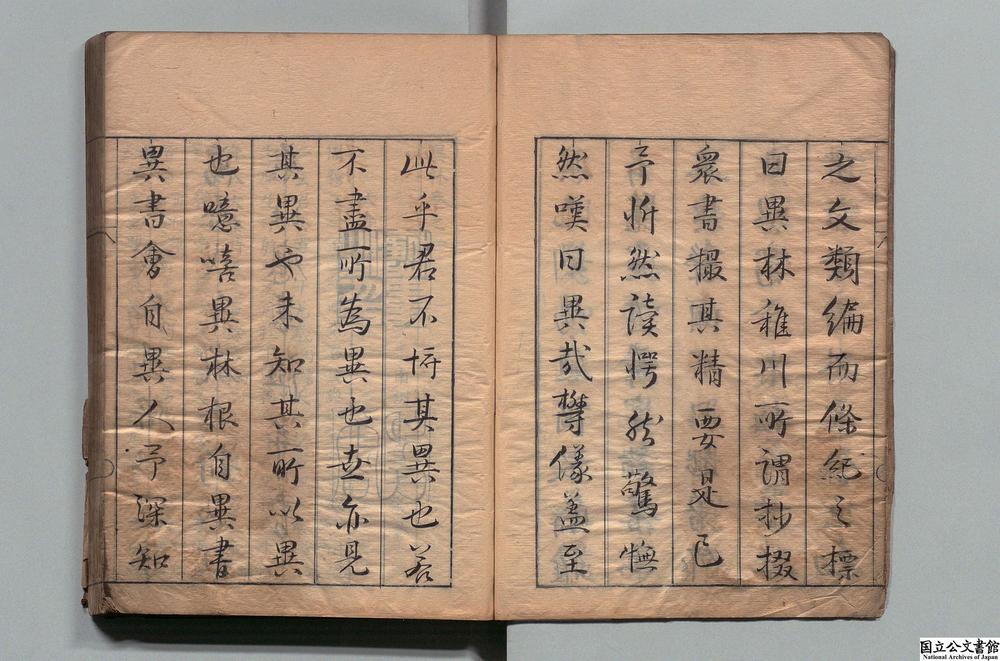 之文類編而條紀之標
曰異林稚川所謂抄掇
衆書撮其精要是已
予忻然讀愕然驚憮
然嘆曰異哉欎儀蓋至
此乎君不恠其異也若
不盡所為異也世亦見
其異也未知其所以異
也噫嘻異林根自異書
異書會自異人予深知
国立公文書館
National Archives of Japan